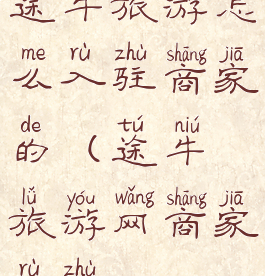 途牛旅游怎
me rù zhù shāng jiā
么入驻商家
de tú niú
的（途牛
lǚ yóu wǎng shāng jiā
旅游网商家
rù zhù